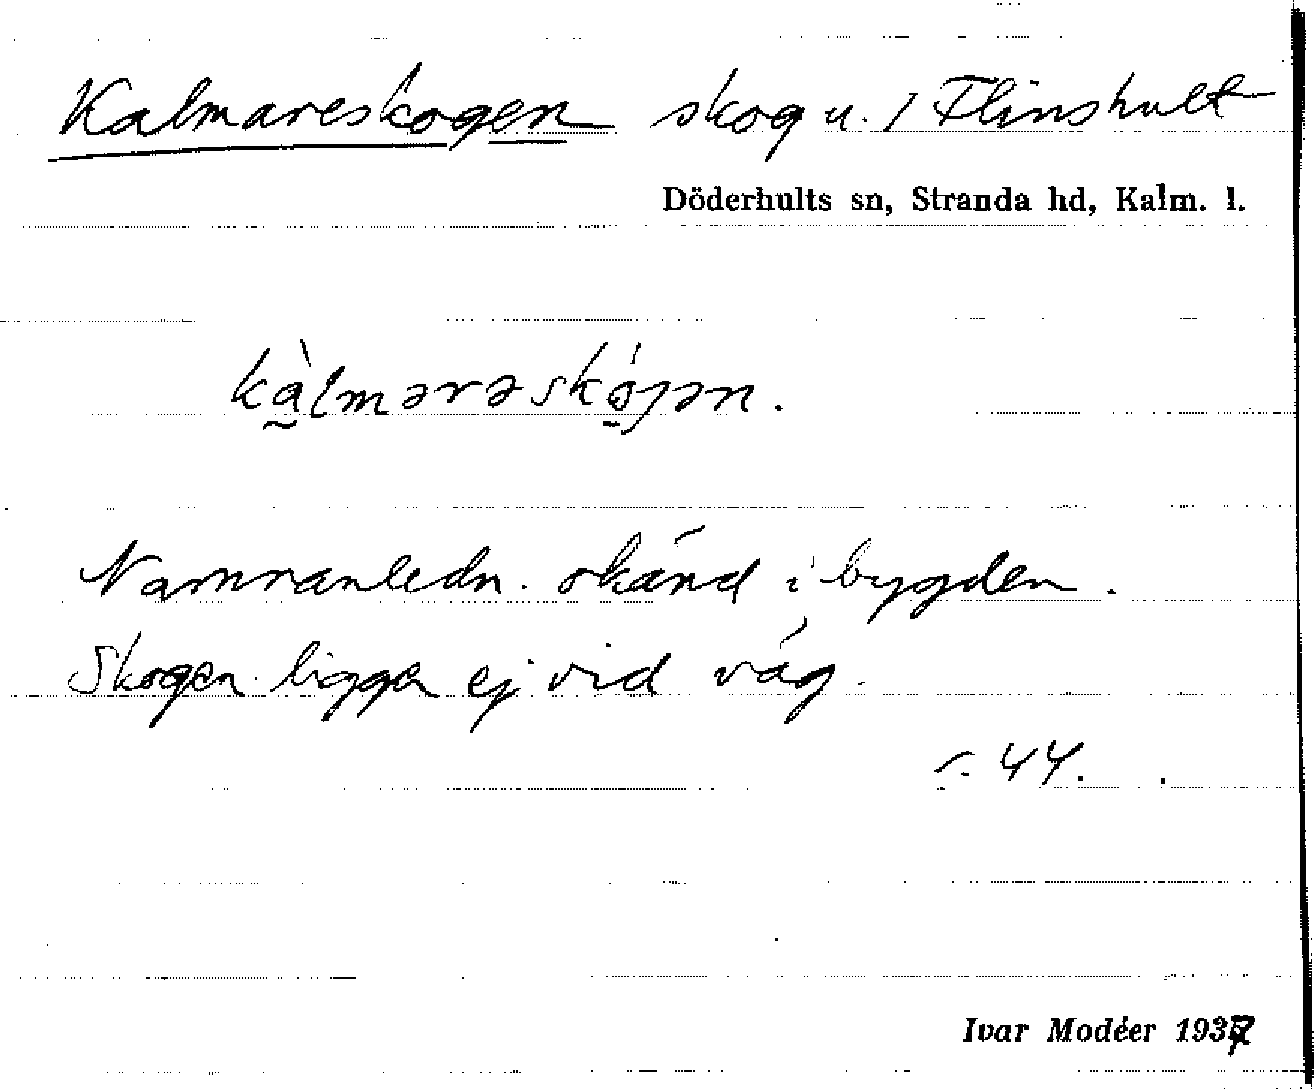 Kalmareskogen skog u. 1 Flinshult
Döderhults sn, Stranda hd, Kalm. l.
kàlmərəskójən.
Namnanledn. okänd i bygden.
Skogen ligger ej vid väg.
44.
Ivar Modéer 1937